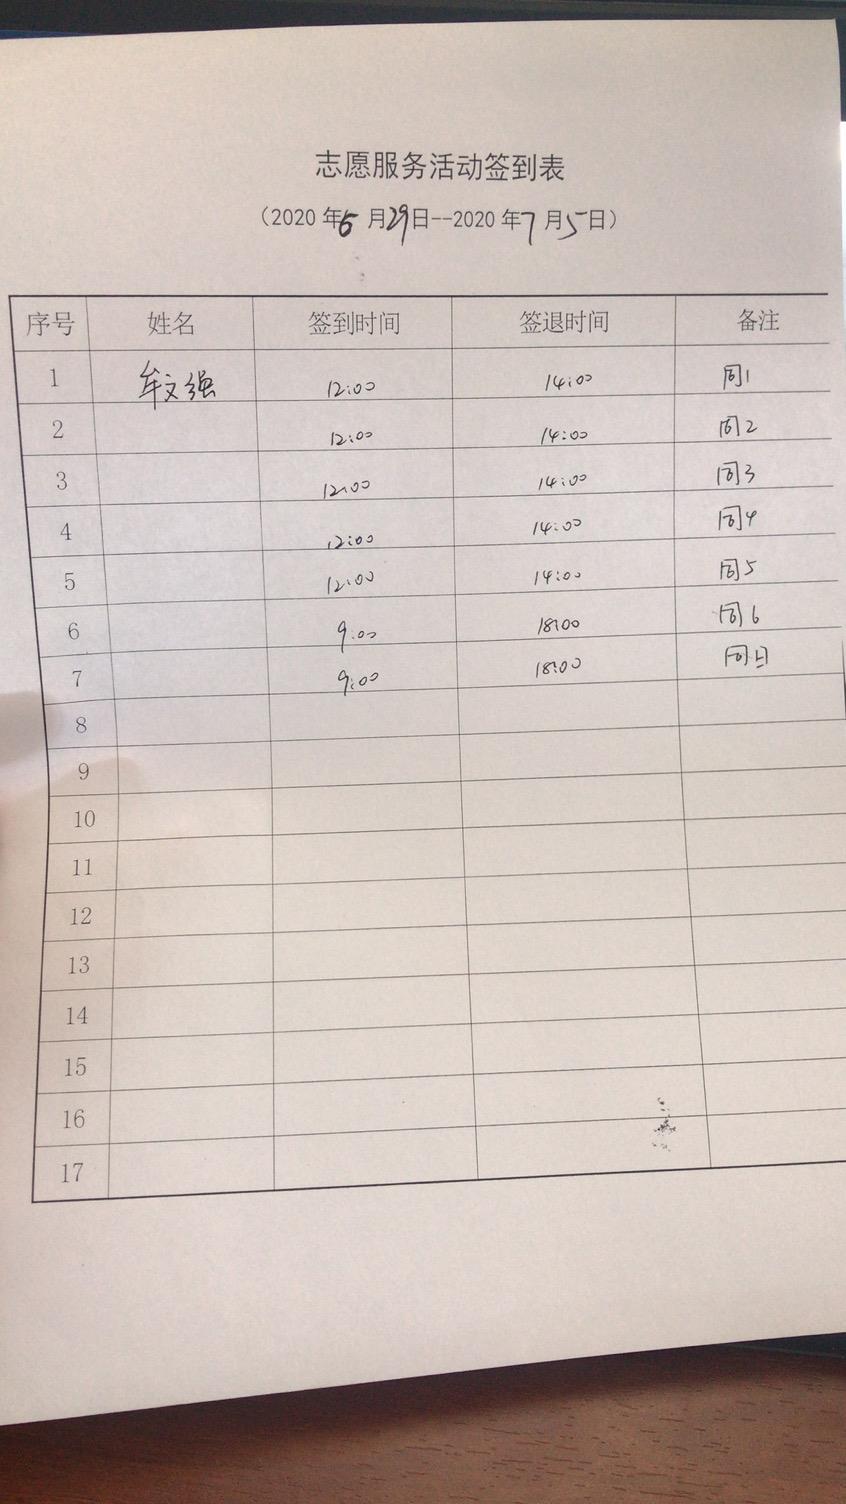 志愿服务活动签到表
（2020 年 6 月 29 日--2020 年 7 月 5 日）
序号 姓名 签到时间 签退时间 备注
1 牟文强 12:00 14:00 周1
2 12:00 14:00 周2
3 12:00 14:00 周3
4 12:00 14:00 周4
5 12:00 14:00 周5
6 9:00 18:00 周6
7 9:00 18:00 周日
8
9
10
11
12
13
14
15
16
17